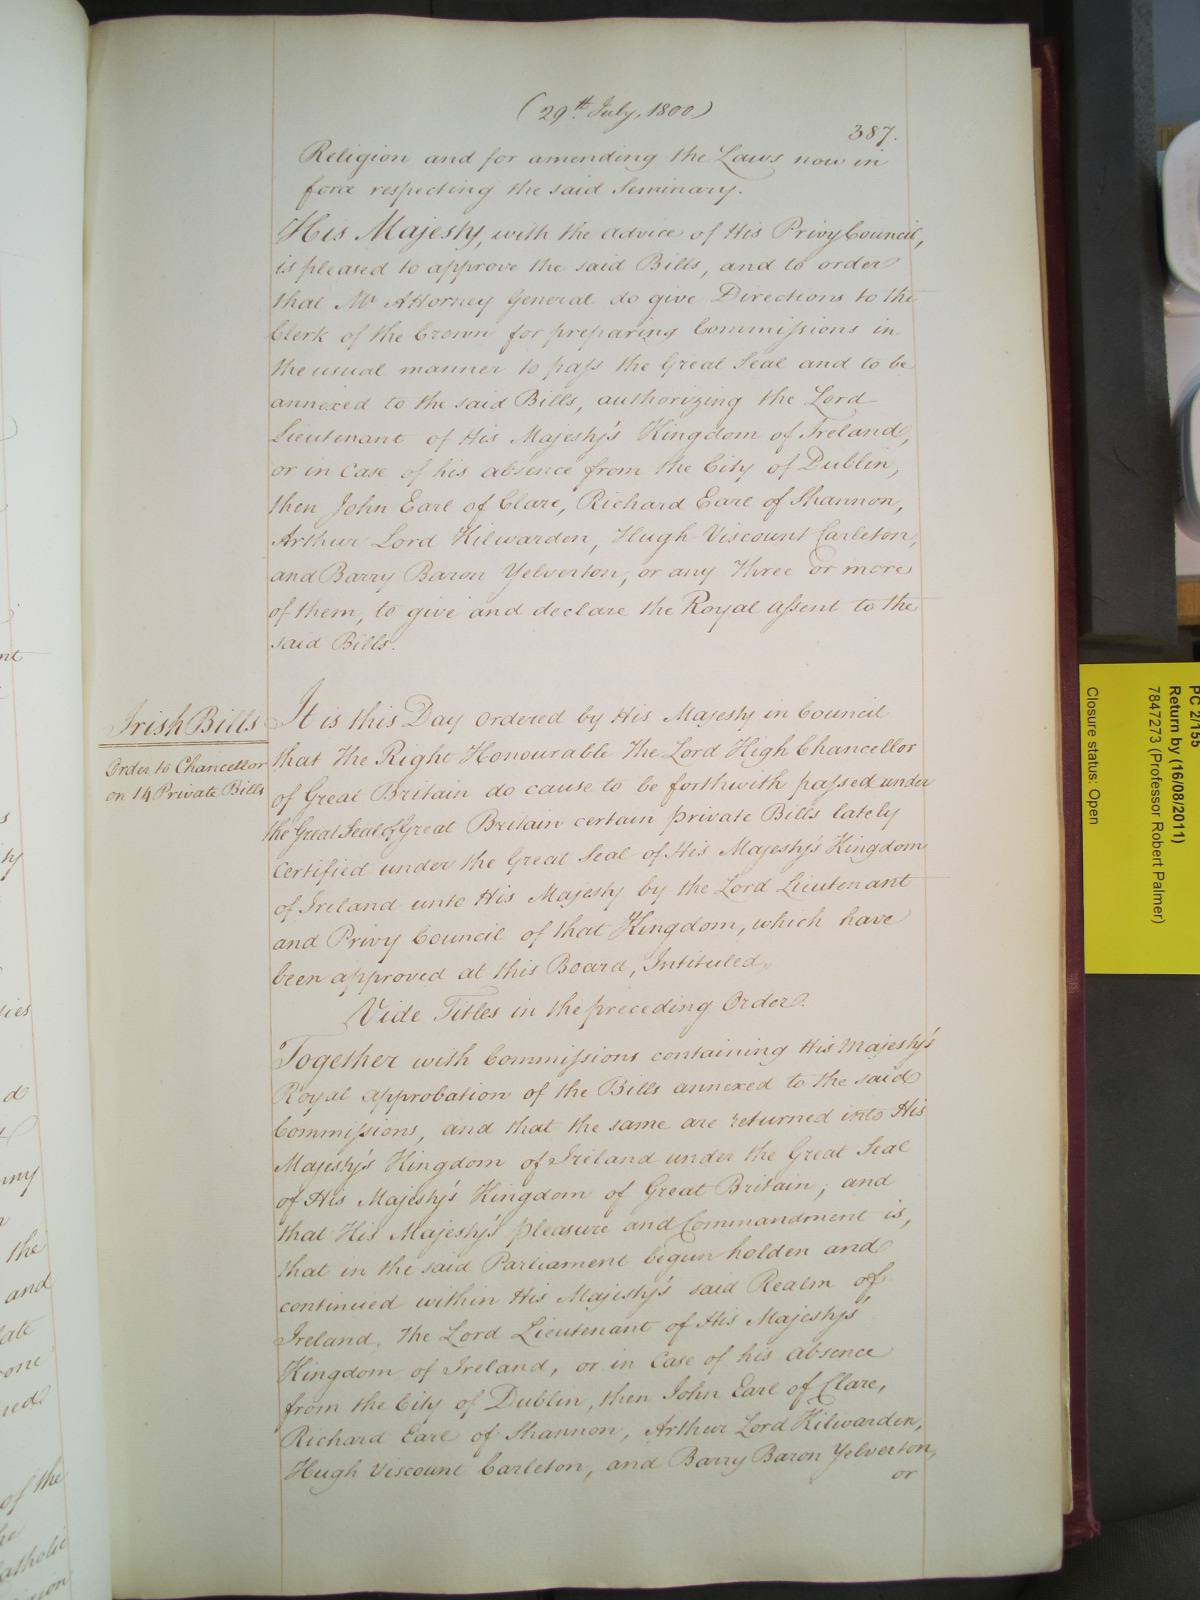 (29th July, 1800)
387.
Religion and for amending the Laws now in
force respecting the said Seminary.
His Majesty, with the advice of His Privy Council,
is pleased to approve the said Bills, and to order
that Mr Attorney General do give Directions to the
Clerk of the Crown for preparing Commissions in
the usual manner to pass the Great Seal and to be
annexed to the said Bills, authorizing the Lord
Lieutenant of His Majesty's Kingdom of Ireland,
or in Case of his absence from the City of Dublin,
then John Earl of Clare, Richard Earl of Shannon,
Arthur Lord Kilwarden, Hugh Viscount Carleton,
and Barry Baron Yelverton, or any Three or more
of them, to give and declare the Royal assent to the
said Bills.
Irish Bills
Order to Chancellor
on 14 Private Bills
It is this Day ordered by His Majesty in Council
that the Right Honourable the Lord High Chancellor
of Great Britain do cause to be forthwith passed under
the Great Seal of Great Britain certain private Bills lately
Certified under the Great Seal of His Majesty's Kingdom
of Ireland unto His Majesty by the Lord Lieutenant
and Privy Council of that Kingdom, which have
been approved at this Board, Intituled,
Vide Titles in the preceding Order.
Together with Commissions containing His Majesty's
Royal approbation of the Bills annexed to the said
Commissions, and that the same are returned into His
Majesty's Kingdom of Ireland under the Great Seal
of His Majesty's Kingdom of Great Britain; and
that His Majesty's pleasure and Commandment is,
that in the said Parliament begun holden and
continued within His Majesty's said Realm of
Ireland, the Lord Lieutenant of His Majesty's
Kingdom of Ireland, or in Case of his absence
from the City of Dublin, then John Earl of Clare,
Richard Earl of Shannon, Arthur Lord Kilwarden,
Hugh Viscount Carleton, and Barry Baron Yelverton,
or
PC 2/155
Return by (16/08/2011)
7847273 (Professor Robert Palmer)
Closure status: Open
the
and
of the